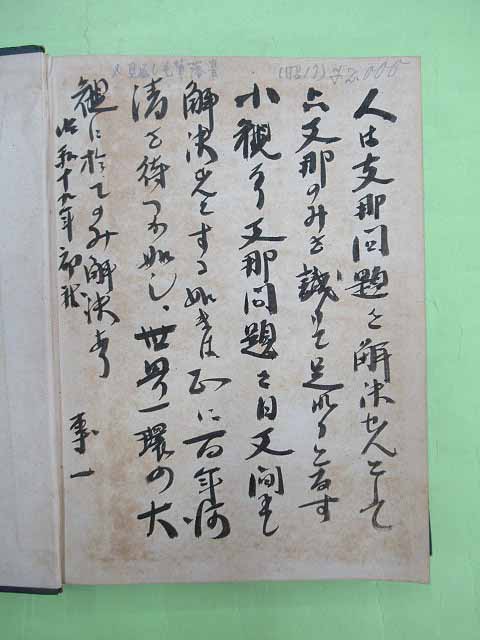 ×見返し毛筆落書
(昭17) ¥2,000
人は支那問題を解決せんとて
支那のみを識りて足れりと為す
小観なり 支那問題を日支間で
解決せんとする如きは正に百年河
清を待つ如し、世界一環の大
観に於てのみ解決す
昭和十九年 初秋
一